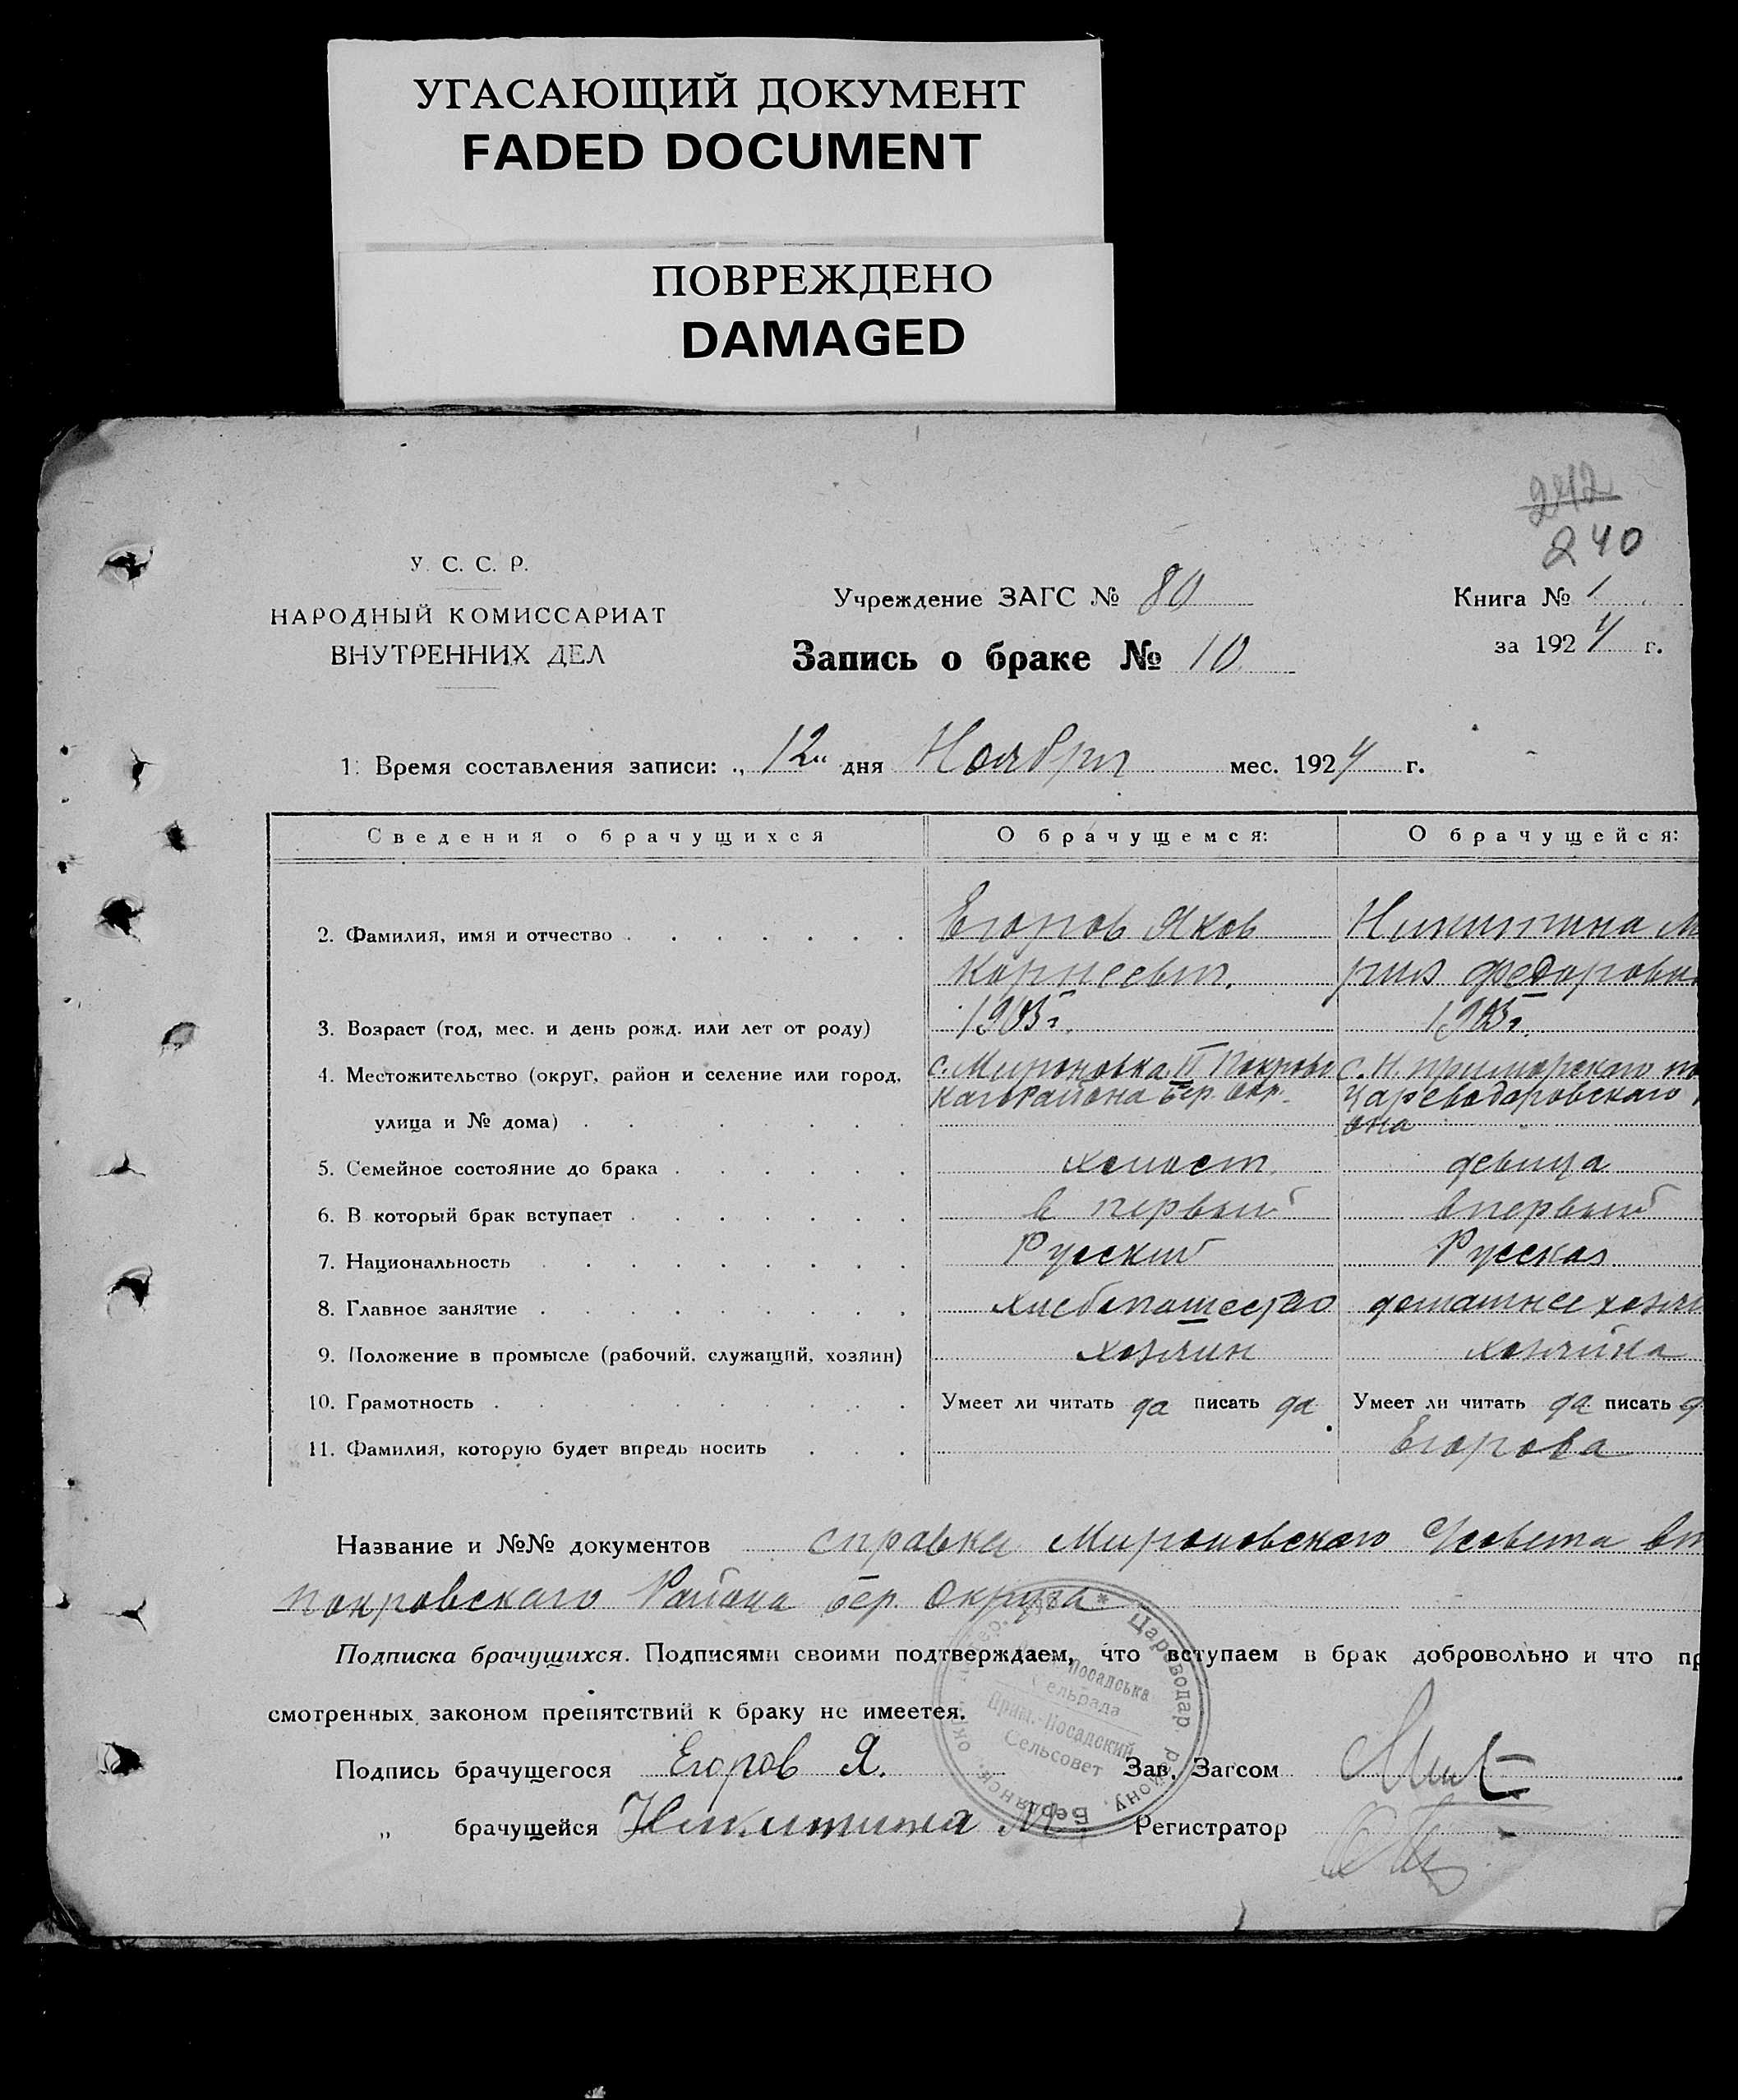 УГАСАЮЩИЙ ДОКУМЕНТ
FADED DOCUMENT
ПОВРЕЖДЕНО
DAMAGED
242
240
У. С. С. Р.
НАРОДНЫЙ КОМИССАРИАТ
ВНУТРЕННИХ ДЕЛ
Учреждение ЗАГС № 80
Запись о браке № 10
Книга № 1
за 1924 г.
1. Время составления записи: „ 12 " дня Ноября мес. 1924 г.
Сведения о брачущихся О брачущемся: О брачущейся:
2. Фамилия, имя и отчество Егоров Яков Никитина М
Корнеевич. рия Федоровн
3. Возраст (год, мес. и день рожд. или лет от роду) 1903 г. 1903 г.
4. Местожительство (округ, район и селение или город, с. Мироновка II Покровс с. Н. приморского по
кого Района бер. окр. Цареводаровского
улица и № дома) она
5. Семейное состояние до брака холост девица
6. В который брак вступает в первый впервый
7. Национальность Русский Русская
8. Главное занятие хлебопашество домашнее хозяи
9. Положение в промысле (рабочий, служащий, хозяин) хозяин хозяйка
10. Грамотность Умеет ли читать да писать да Умеет ли читать да писать д
11. Фамилия, которую будет впредь носить Егорова
Название и №№ документов справка Мироновского
Покровского Района бер. Округа
Подписка брачущихся. Подписями своими подтверждаем, что вступаем в брак добровольно и что пр
смотренных законом препятствий к браку не имеется.
Цареводар. району, Бердянськ. окр.
Посадська
сельрада
Прим.-Посадский
Сельсовет
Подпись брачущегося Егоров Я. Зав. Загсом
„ брачущейся Никитина М. Регистратор